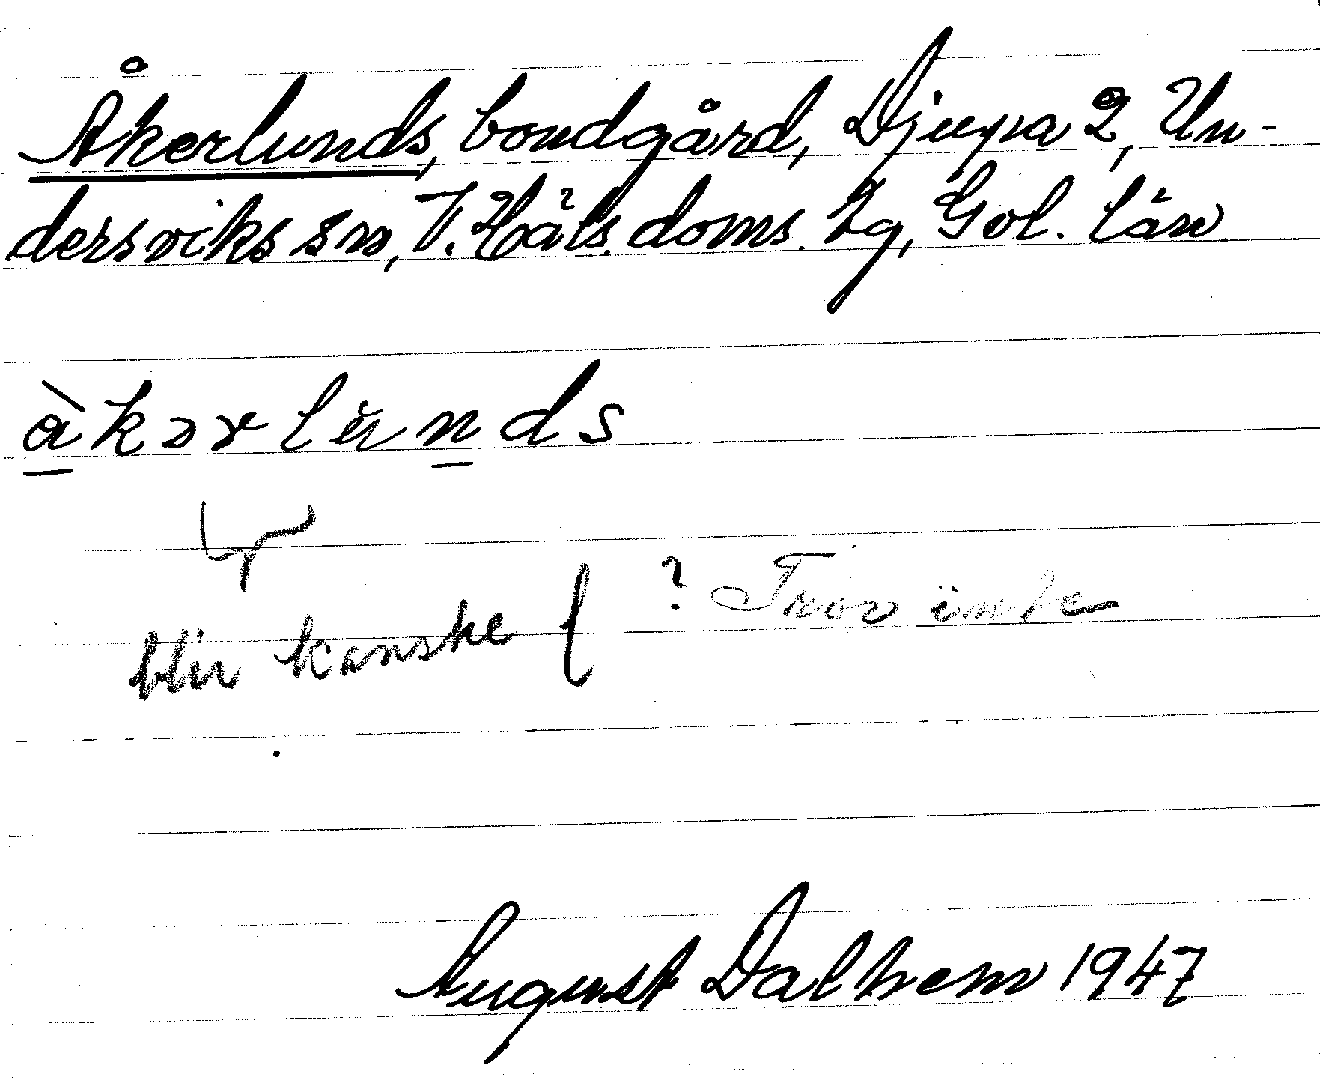 Åkerlunds, bondgård, Djupa 2, Un-
dersviks sn, V. Häls. doms. lg, Gvl. län
àkərlunds
blir kanske ɭ ? Tror inte
August Dalhem 1947